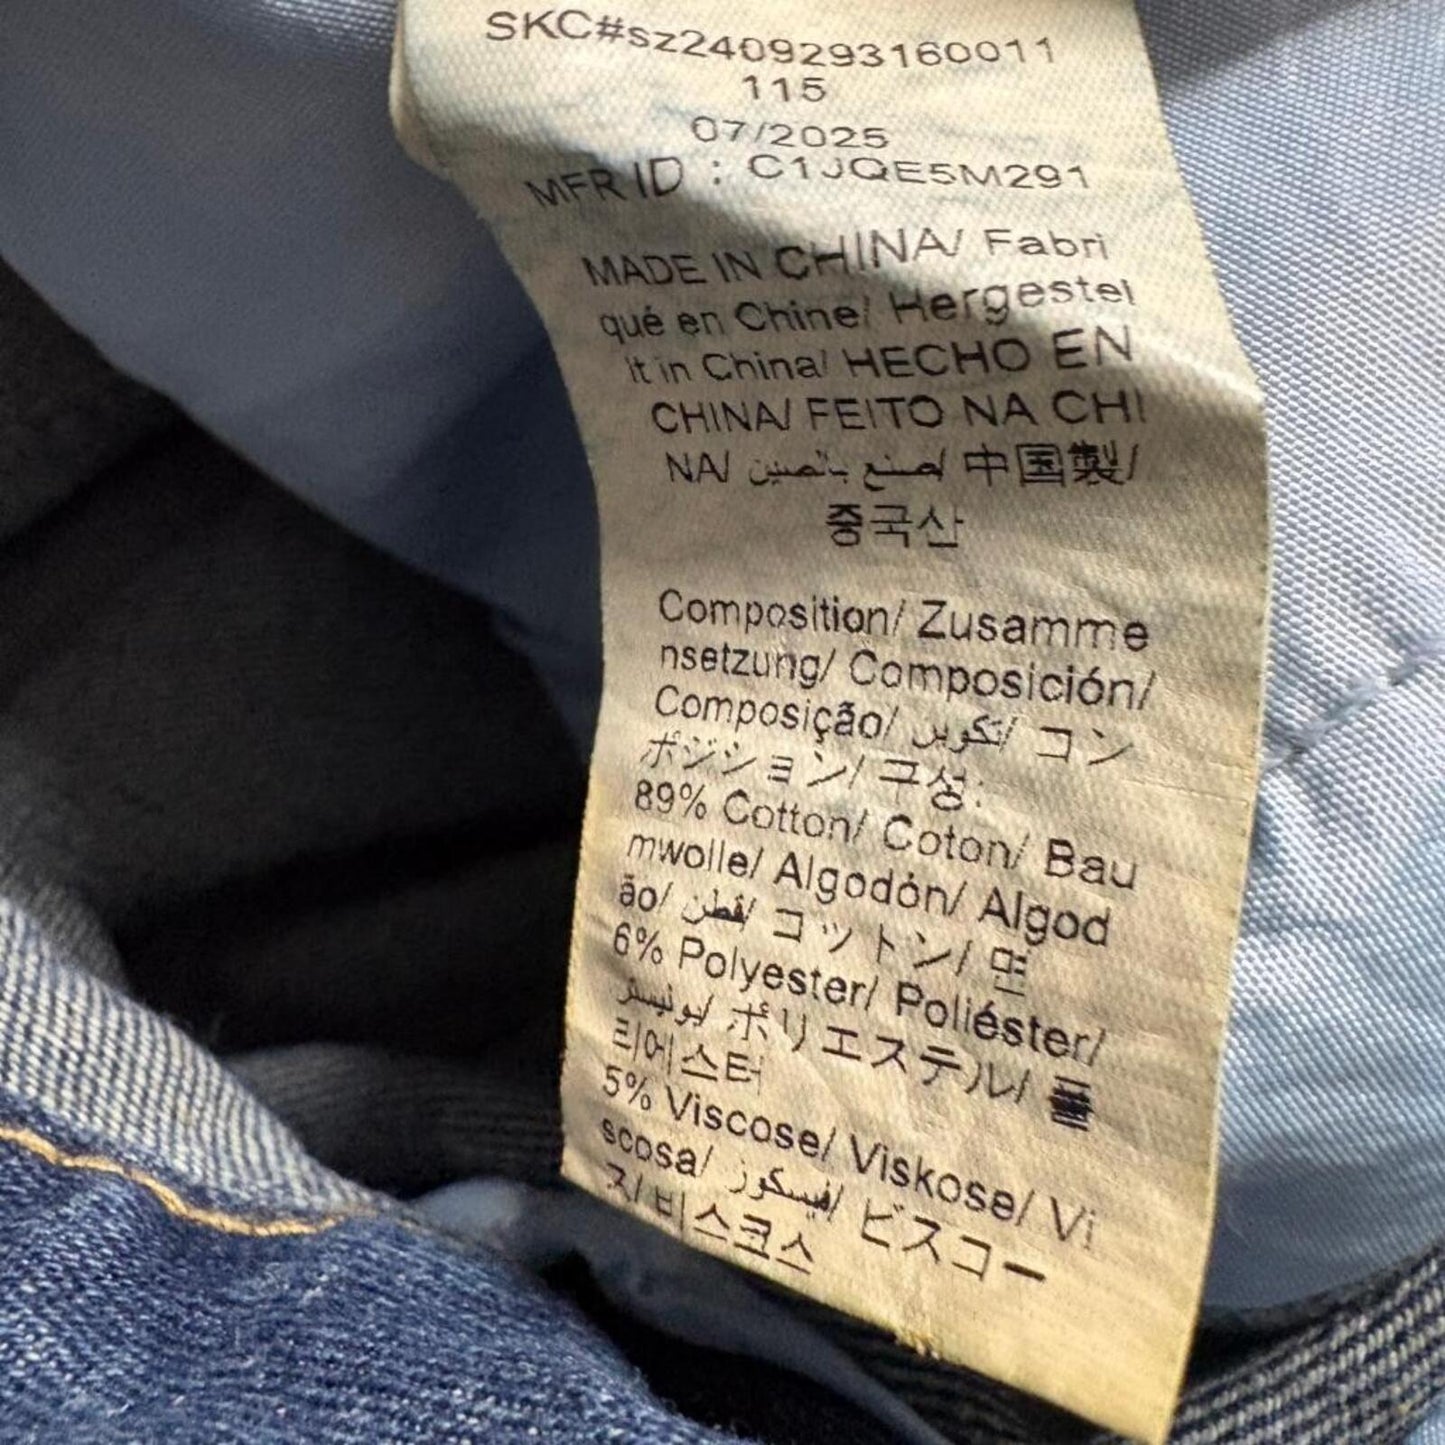 SKC#sz2409293160011
115
07/2025
MFR ID : C1JQE5M291
MADE IN CHINA/ Fabri
qué en Chine/ Hergestel
lt in China/ HECHO EN
CHINA/ FEITO NA CHI
NA/ صنع بالصين/ 中国製/
중국산
Composition/ Zusamme
nsetzung/ Composición/
Composição/ تكوين/ コン
ポジション/ 구성:
89% Cotton/ Coton/ Bau
mwolle/ Algodón/ Algod
ão/ قطن/ コットン/ 면
6% Polyester/ Poliéster/
بوليستر/ ポリエステル/ 폴
리에스터
5% Viscose/ Viskose/ Vi
scosa/ فيسكوز/ ビスコー
ス/ 비스코스